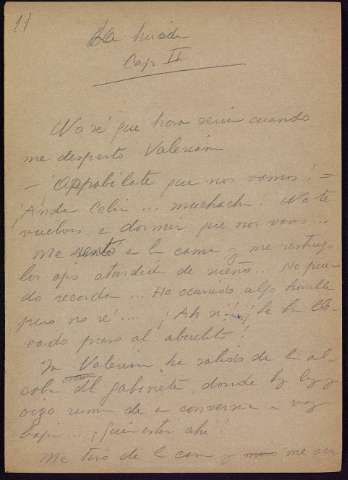 17
La huida
Cap II
No sé que hora sería cuando
me despertó Valerian
— ¡Appabílate que nos vamos! =
¡Anda Celia... muchacha! No te
vuelvas a dormir que nos vamos...
Me siento en la cama y me restrego
los ojos aturdida de sueño... No pue
do recordar... Ha ocurrido algo horrible
pero no sé!... ¡Ah sí! ¡Se han lle
vado preso al abuelito!
Ya Valerian ha salido de la al
coba del gabinete, donde hay luz y
oigo rumor de conversar en voz
baja... ¿Quién está ahí?
Me tiro de la cama y me